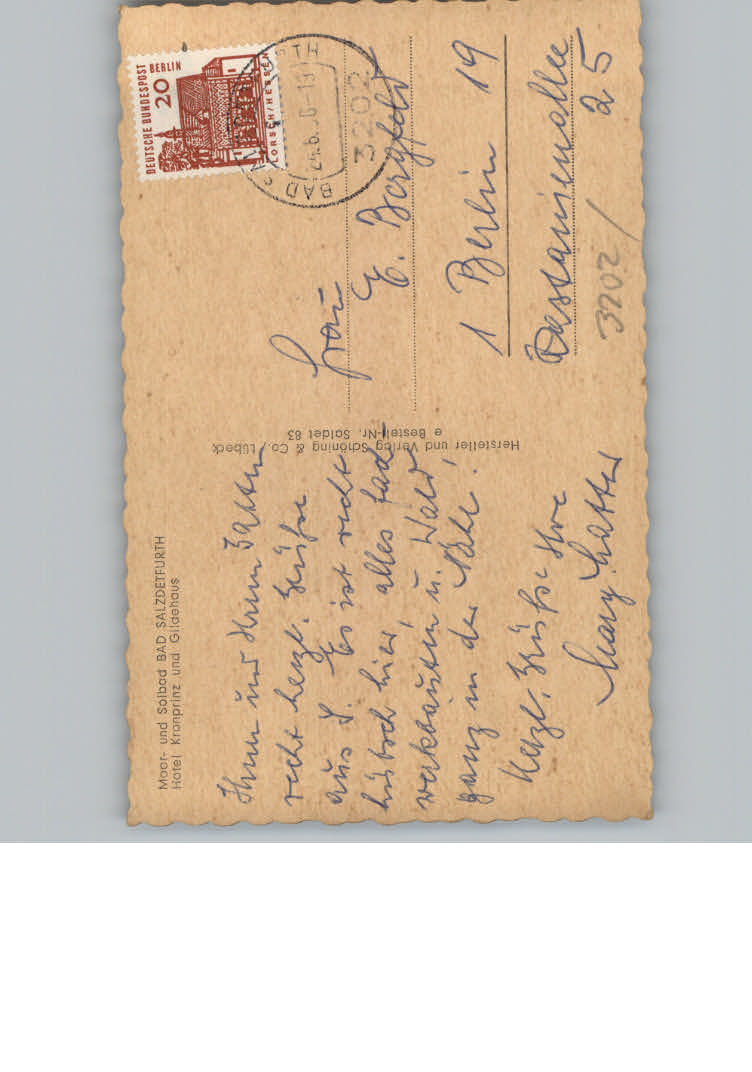 Moor- und Solbad BAD SALZDETFURTH
Hotel Kronprinz und Gildehaus
Ihnen und Ihrem Gatten
recht herzl. Grüße
aus S. Es ist recht
hübsch hier, alles Fach-
werkbauten u. Wald
ganz in der Nähe!
Herzl. Grüße Ihre
Mary
Hersteller und Verlag Schöning & Co., Lübeck
e Bestell-Nr. Saldet 83
DEUTSCHE BUNDESPOST
BERLIN
20
LORSCH/HESSEN
BAD
3202
Frau
E. Bergfeld
1 Berlin 19
Kastanienallee
25
3202/